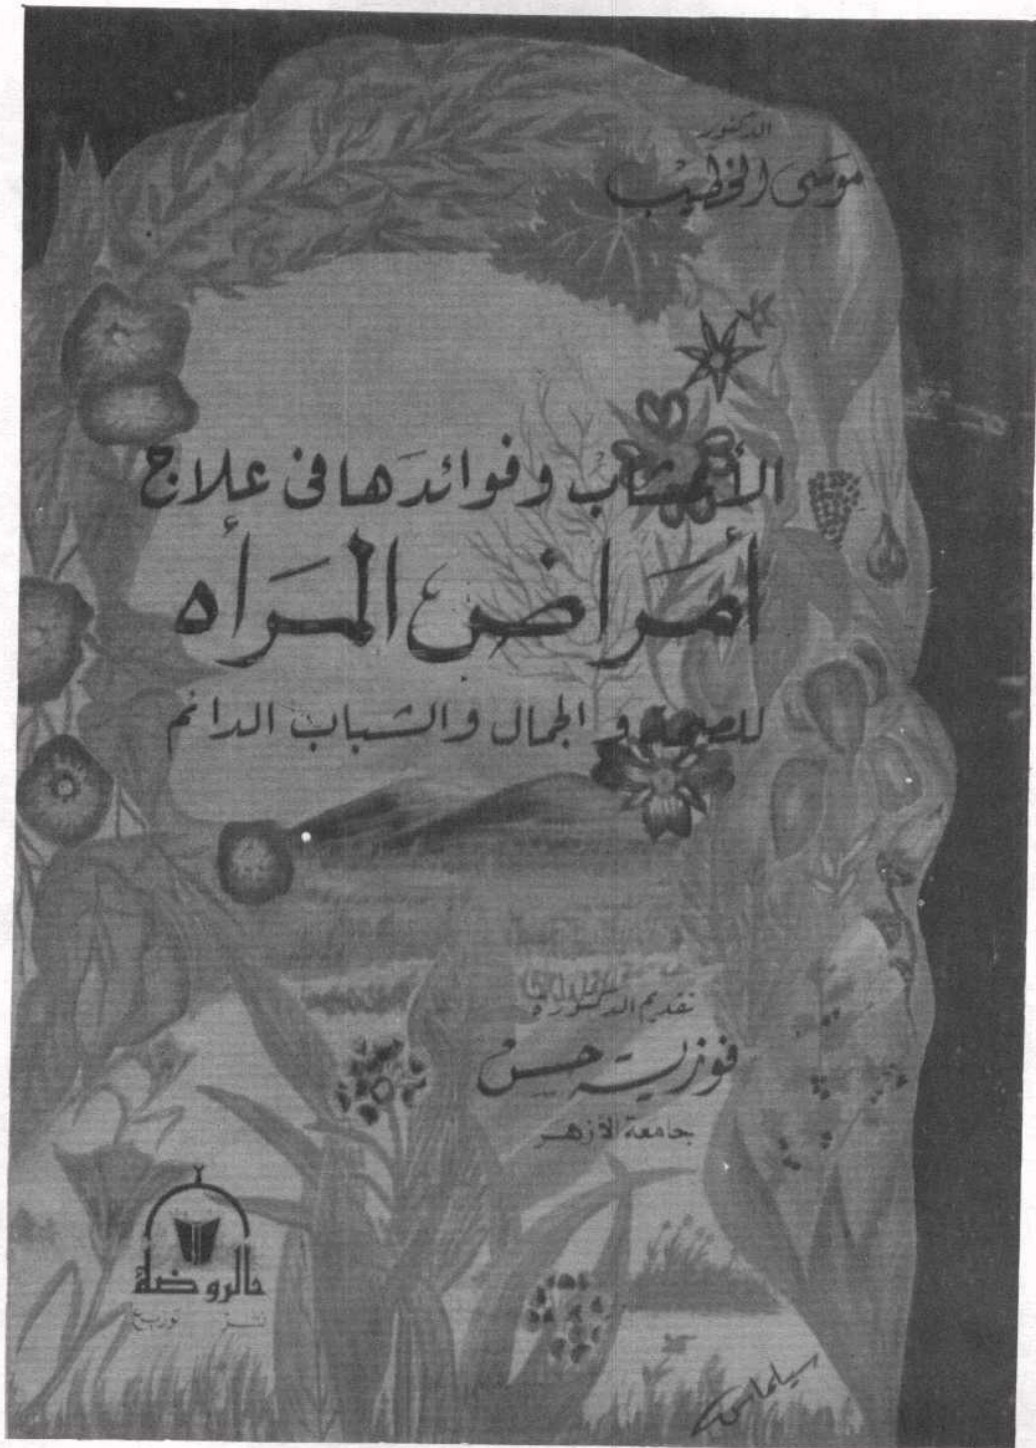 الدكتور
موسى الخطيب
الأعشاب وفوائدها فى علاج
أمَراض المَرأه
للصحة و الجمال والشباب الدائم
تقديم الدكتورة
فوزية حسن
جامعة الأزهر
الروضة
نشر توزيع